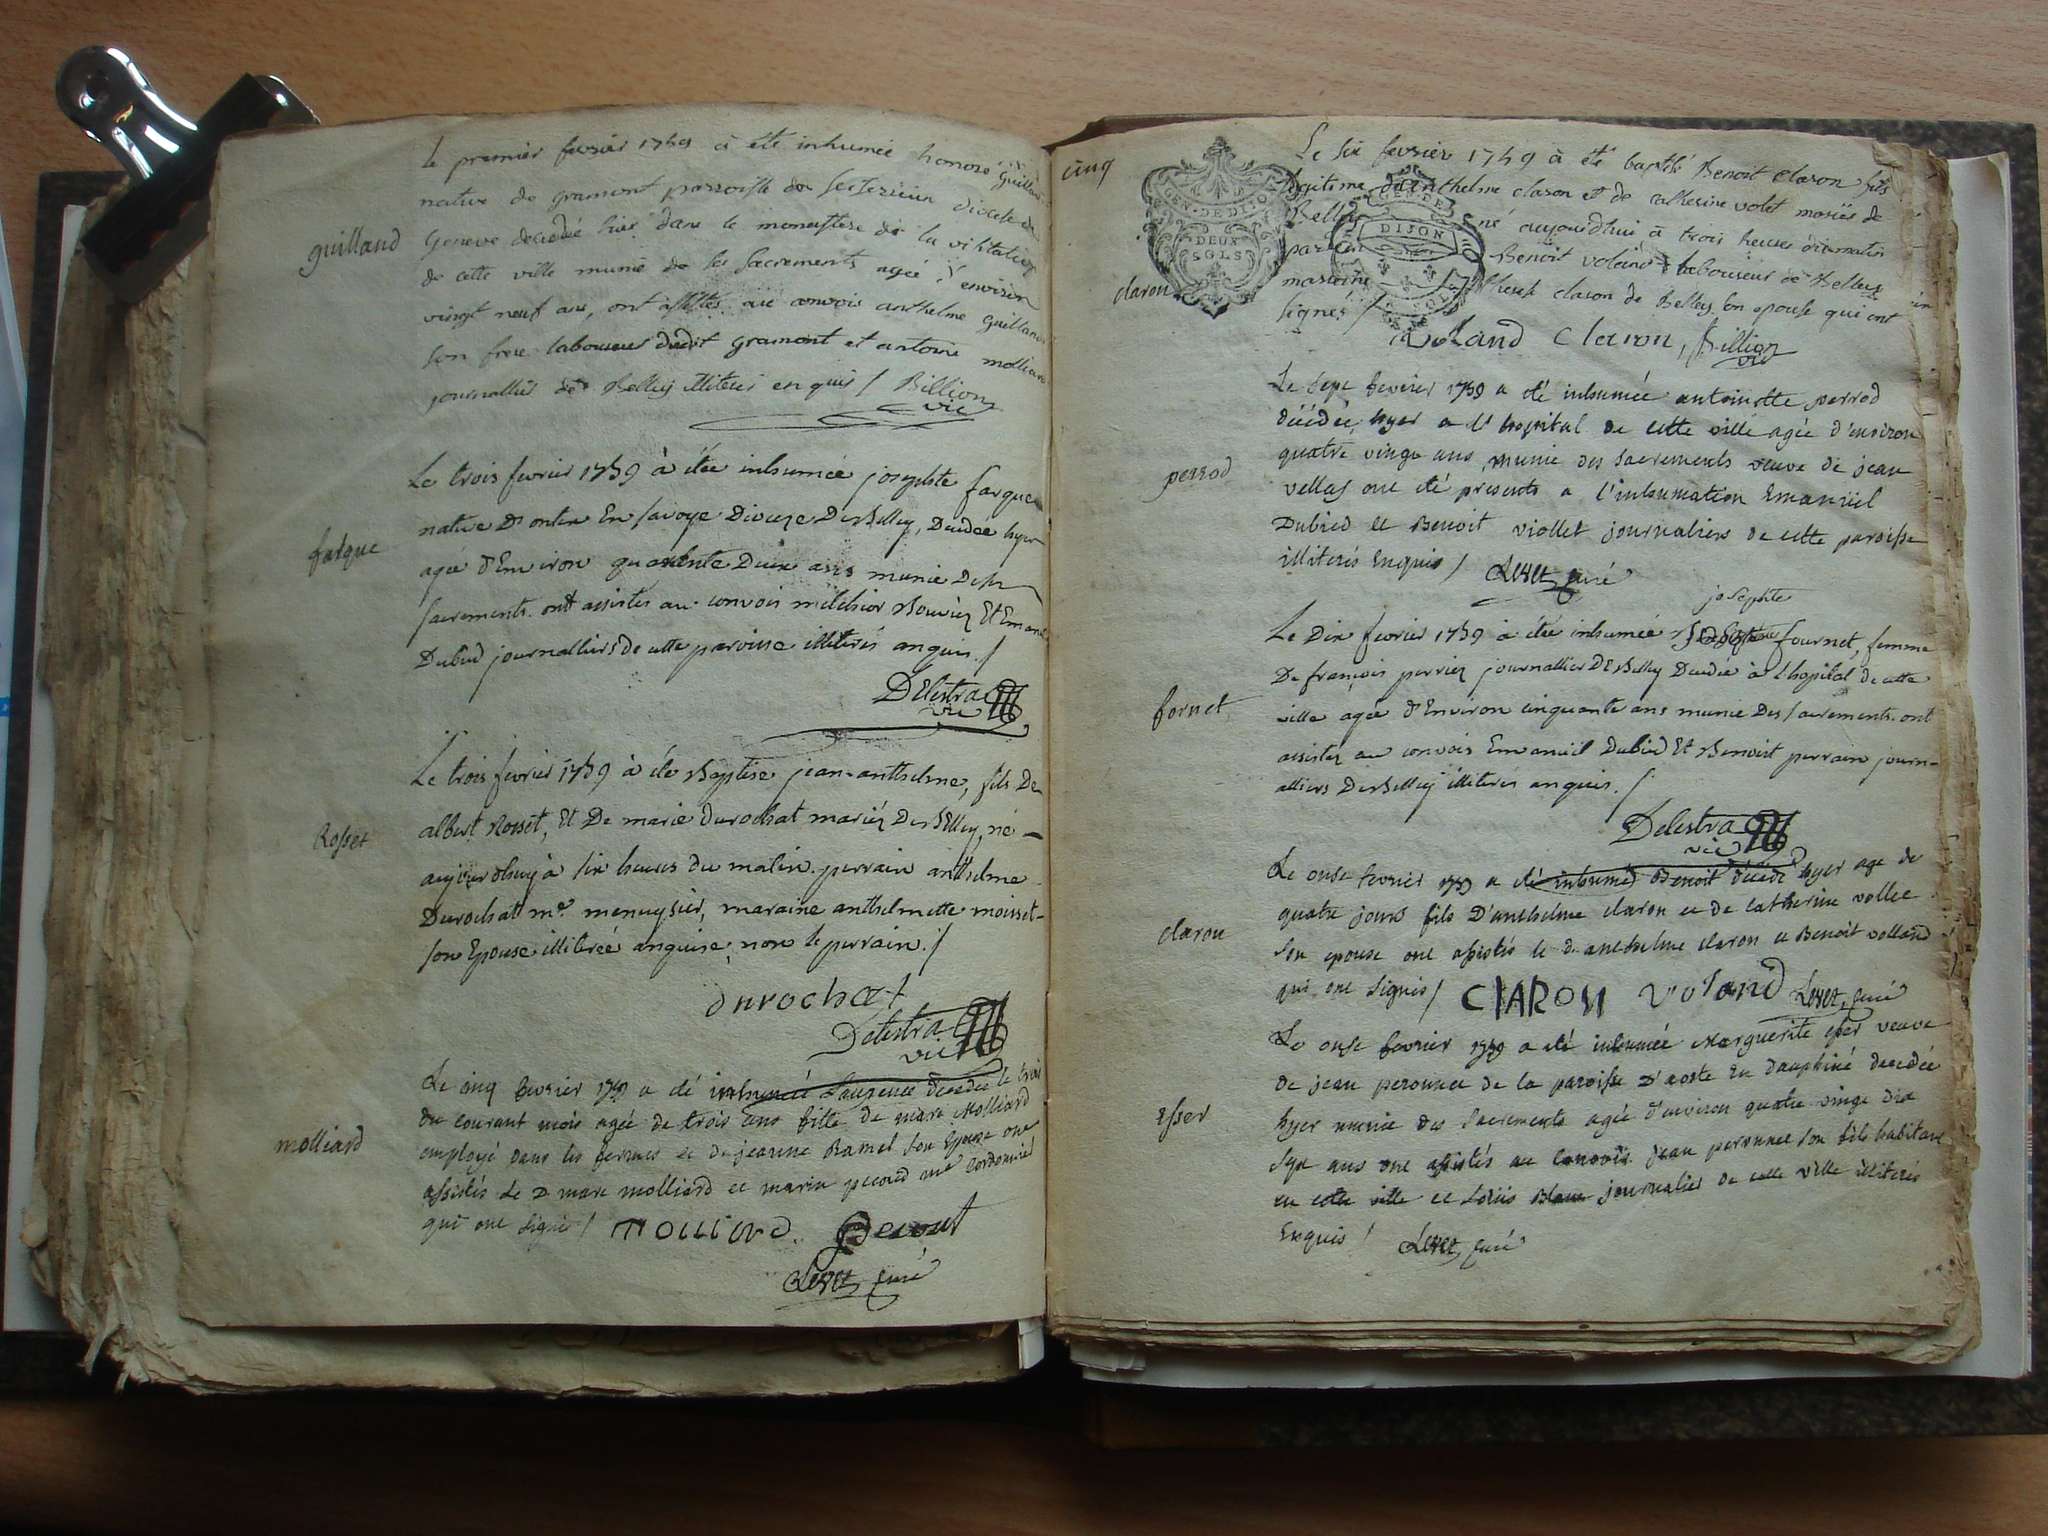 Le premier fevrier 1759 à été inhumée honoré Guilland
native de gramont parroisse de diocese de
guilland
Geneve decedé hier dans le monastere de la visitation
de cette ville munie de ses Sacrements agée d'environ
vingt neuf ans, ont assistés au convois anthelme Guilland
son frere laboureur dudit gramont et antoine molliard
journallier de Belley illiterés enquis / Billion
vic
Le trois fevrier 1759 à étée inhumée josephte farque
native D'ontex En Savoye Dioceze De Belley, Decedee hyer
farque
agée d'Environ quarente Deux ans munie Des
sacrements. ont assistés au convois melchior Bouvier Et Eman
Dubied journalliers de cette paroisse illiterés anquis./
Delestra
vic
Le trois fevrier 1759 à été Baptisé jean-anthelme, fils De
albert Rosset, Et De marie durochat mariéz De Belley, né
Rosset
aujourdhuy à six heures du matin. perrain anthelme
Durochatt me. menuysier, maraine anthelmette moisset
son Epouse illiterée anquise, non le perrain./
durochat
Delestra
vic
Le cinq fevrier 1759 a été inhumée Laurence decedée le trois
du courant mois agée de trois ans fille de marc Molliard
molliard
employé dans les fermes et de jeanne Ramel son Epouse ont
assistés le D marc molliard et marin pecoud me cordonnier
qui ont signés / molliard.
Levet, curé
cinq
Le six fevrier 1759 à été baptisé Benoit Claron fils
legitime de anthelme claron et de catherine volet mariés de
GEN·DE DIJON
DEUX
SOLS
GEN·DE
DIJON
Belley né aujourdhui à trois heures du matin
par Benoit voland laboureur de Belley
claron
maraine claron de Belley son epouse qui ont
signés /
voland claron, Billion
vic
Le sept fevrier 1759 a été inhumée antoinette perrod
décédée hyer a l'hopital de cette ville agée d'environ
perrod
quatre vingt ans munie des sacrements veuve de jean
vellas ont été presents a l'inhumation Emanuel
Dubied et Benoit viollet journaliers de cette paroisse
illiterés Enquis / Levet, curé
josephte
Le Dix fevrier 1759 à étée inhumée fournet, femme
De françois perrier journallier De Belley Decedée à l'hopital de cette
fornet
ville agée d'Environ cinquante ans munie Des sacrements. ont
assistés au convois Emanuel Dubied Et Benoist perrain journ-
alliers De Belley illiterés anquis./
Delestra
vic
Le onse fevrier 1759 a été inhumé Benoit décédé hyer agé de
quatre jours fils D'anthelme claron et de Catherine vollet
claron
son epouse ont assistés le D. anthelme claron et Benoit volland
qui ont signés / CLARON voland Levet, curé
Le onse fevrier 1759 a été inhumée Marguerite Esser veuve
de jean peronnet de la paroisse D'aoste En dauphiné decedée
Esser
hyer munie des Sacrements agée d'environ quatre vingt dix
sept ans ont assistés au convois jean peronnet son fils habitant
en cette ville et Loüis Blanc journalier de cette ville illiterés
Enquis / Levet, curé